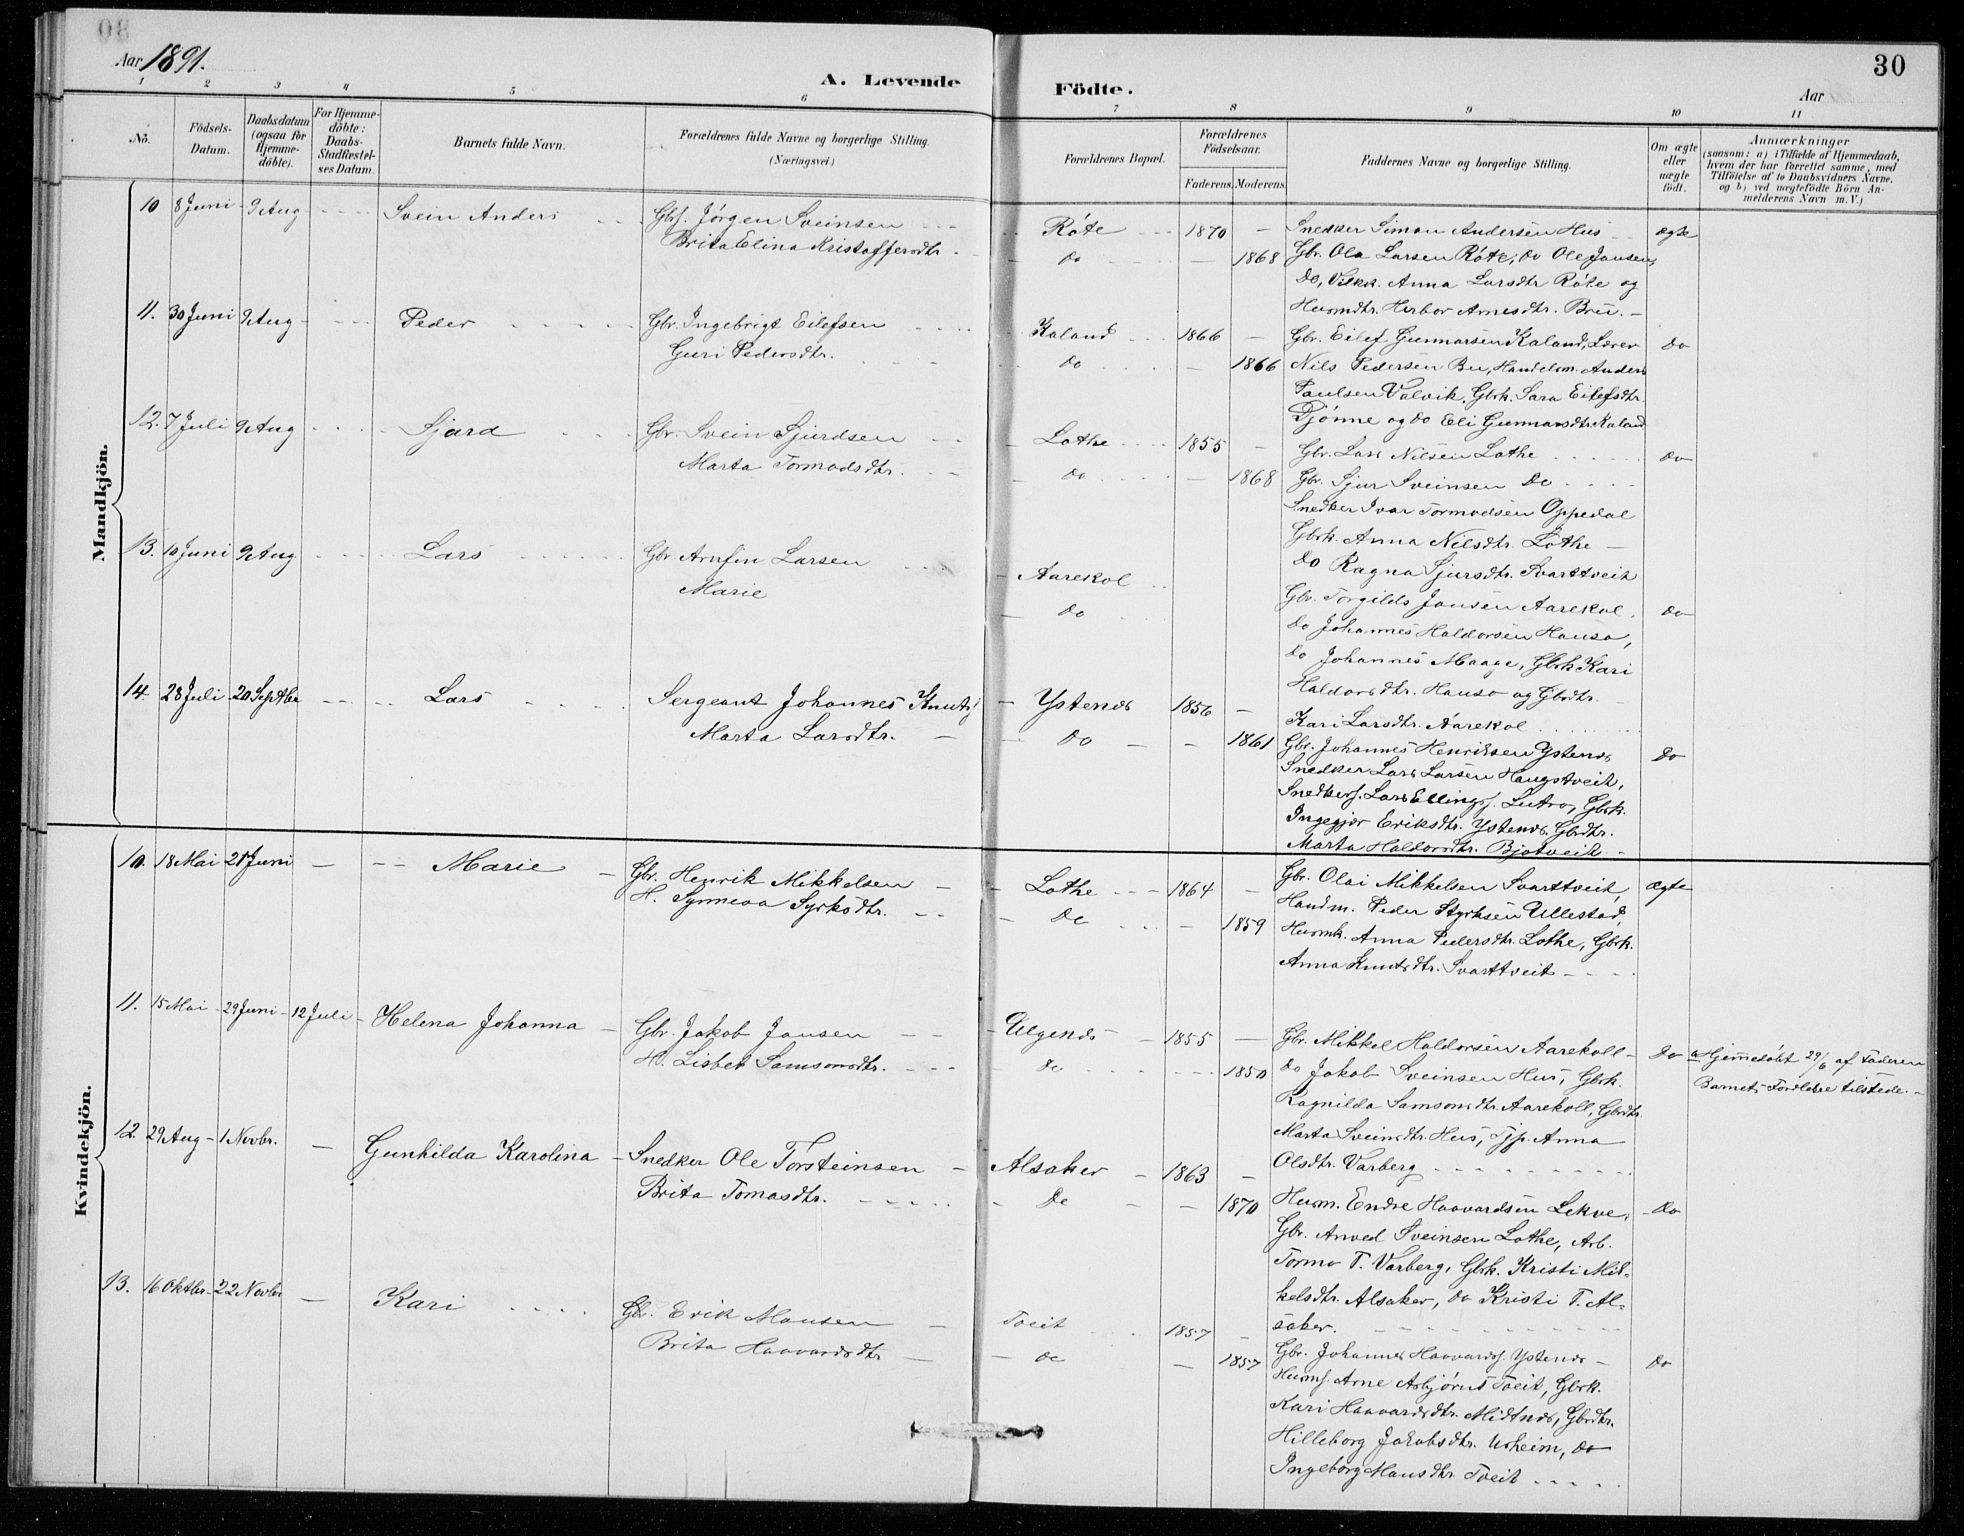 30
Aar 1891.
A. Levende Födte.
Aar
1 2 3 4 5 6 7 8 9 10 11
No.
Födsels-Datum.
Daabsdatum (ogsaa for Hjemme-döbte).
For Hjemme-döbte: Daabs-Stadfæstel-ses Datum.
Barnets fulde Navn.
Forældrenes fulde Navne og borgerlige Stilling. (Næringsvei.)
Forældrenes Bopæl.
Forældrenes Födselsaar.
Faderens. Moderens.
Faddernes Navne og borgerlige Stilling.
Om ægte eller uægte födt.
Anmærkninger
(saasom: a) i Tilfælde af Hjemmedaab,
hvem der har forrettet samme, med
Tilföielse af to Daabsvidners Navne,
og b) ved uægtefödte Börn An-
melderens Navn m. V.)
Mandkjön.
10 8 Juni 9 Aug Svein Anders Gbrs. Jørgen Sveinsen Røte 1870 ægte
Brita Elina Kristaffersdtr. do 1868
Snedker Simon Andersen Hus
Gbr. Ola Larsen Røte, do Ole Jansen
do, Anna Larsdtr Røte og
Husmdtr. Herbor Arnesdtr. Bru.
11. 30 Juni 9 Aug Peder Gbr. Ingebrigt Eilefsen Kaland 1866 do
Guri Pedersdtr. do 1866
Gbr. Eilef Gunnarsen Kaland, Lærer
Nils Pedersen Bu, Handelsm. Anders
Paulsen Valvik, Gbrk. Sara Eilefsdtr.
Djønne og do Eli Gunnarsdtr. Kaland
12. 7 Juli 9 Aug Sjurd Gbr. Svein Sjurdsen Lothe 1855 do
Marta Tormodsdtr. do 1868
Gbr. Lars Nilsen Lothe
Gbr. Sjur Sveinsen do
Snedker Ivar Tormodsen Oppedal
Gbrk. Anna Nilsdtr. Lothe
do Ragna Sjursdtr. Svarttveit
13. 10 Juni 9 Aug Lars Gbr Arnfin Larsen Aarekol do
Marie do
Gbr. Torgilds Jansen Aarekol
do Johannes Haldorsen Hauso,
do Johannes Maage, Gbrk Kari
Haldorsdtr. Hauso og Gbrdtr.
Kari Larsdtr. Aarekol
14. 28 Juli 20 Septbr Lars Sergeant Johannes Knuts. Ystenes 1856 do
Marta Larsdtr. do 1861
Gbr. Johannes Henriksen Ystenes
Snedker Lars Larsen Haugstveit,
Snedkers. Lars Ellings. Lutro, Gbrk.
Ingegjer Eriksdtr. Ystenes, Gbrdtr.
Marta Haldorsdtr. Bjotveit
Kvindekjön.
10. 18 Mai 21 Juni Marie Gbr. Henrik Mikkelsen Lothe 1864 ægte
H. Synneva Syrksdtr. do 1859
Gbr. Olai Mikkelsen Svarttveit,
Handm. Peder Styrksen Ullestad,
Husmk. Anna Pedersdtr. Lothe, Gbrk.
Anna Knutsdtr. Svarttveit
11. 15 Mai 29 Juni 12 Juli Helena Johanna Gbr. Jakob Jansen Ulgenes 1855 do
H. Lisbet Samsonsdtr. do 1850
Gbr. Mikkel Haldorsen Aarekoll
do Jakob Sveinsen Hus, Gbrk.
Ragnilda Samsonsdtr. Aarekoll, Gbrdtr.
Marta Sveinsdtr. Hus, Tjp. Anna
Olsdtr. Varberg
a Hjemmedøbt 29/6 af Faderen
Barnets Forældre tilstede.
12. 29 Aug 1 Novbr. Gunhilda Karolina Snedker Ole Torsteinsen Alsaker 1863 do
Brita Tomasdtr. do 1870
Husm. Endre Haavardsen Lekve,
Gbr. Anved Sveinsen Lothe, Arb.
Tormo T. Varberg, Gbrk. Kristi Mik-
kelsdtr. Alsaker, do Kristi T. Al-
saker.
13. 16 Oktbr. 22 Novbr Kari Gbr. Erik Mansen Tveit 1857 do
Brita Haavardsdtr do 1857
Gbr. Johannes Haavards. Ystenes
Husms. Arne Asbjørns Tveit, Gbrk.
Kari Haavardsdtr. Midtnes, Gbrdtr.
Hilleborg Jakobsdtr. Urheim, do
Ingeborg Mansdtr. Tveit